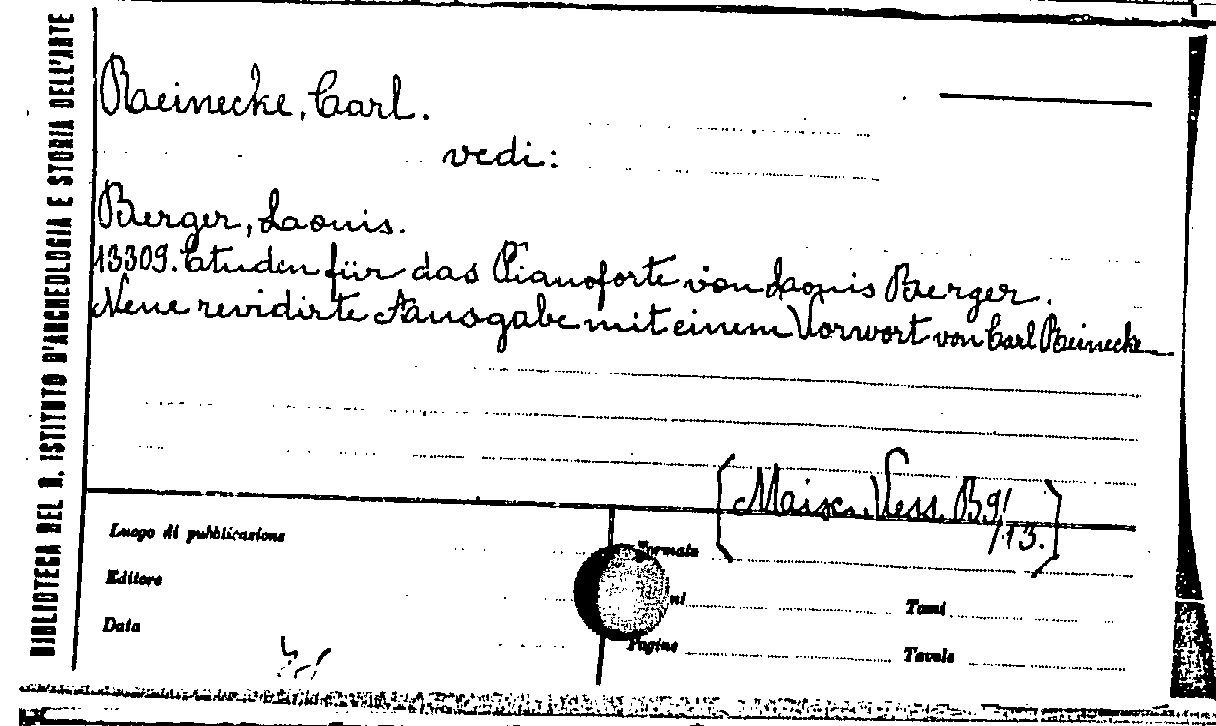 BIBLIOTECA DEL R. ISTITUTO D'ARCHEOLOGIA E STORIA DELL'ARTE
Reinecke, Carl.
vedi:
Berger, Louis.
13309. Etuden für das Pianoforte von Louis Berger.
Neue revidirte Ausgabe mit einem Vorwort von Carl Reinecke
[Maisc. Vess. B9/13.]
Luogo di pubblicazione
Formato
Editore
Tomi
Data
Pagine
Tavole